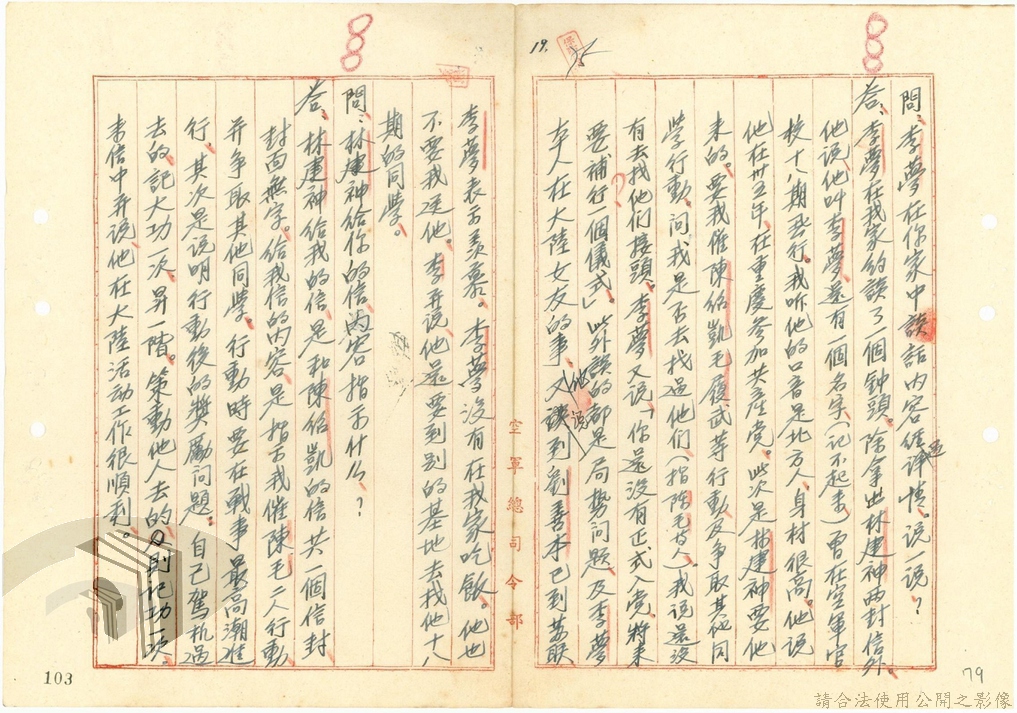 問：李夢在你家中談話內容經過詳情。说一说？
答：李夢在我家約談了一個钟頭。除拿出林建神两封信外。
他说他叫李夢、還有一個名字（记不起来）曾在空軍官
校十八期飛行。我听他的口音是北方人、身材很高。他说
他在卅五年、在重慶参加共產党。此次是林建神要他
来的。要我催陳紹凱毛履武等行動及争取其他同
学行動。问我是否去找過他们（指陈毛等人）。我说還沒
有去找他们接頭。李夢又说「你還沒有正式入党、將来
要補行一個儀式」此外談的都是局势问题、及李夢
本人在大陸女友的事、他说到劉善本已到苏联
空軍總司令部
李夢表示羡慕。李夢沒有在我家吃飯。他也
不要我送他。李并说他還要到别的基地去找他十八
期的同学。
問：林建神给你的信、内容指示什么？
答：林建神给我的信、是和陳紹凱的信共一個信封
封面無字。给我信的内容是指示我催陳毛二人行動
并争取其他同学。行動時要在戰事最高潮進
行、其次是说明行動後的獎勵问题、自己驾机過
去的、記大功一次昇一階。策動他人去的則记功一次。
来信中并说、他在大陸活动工作很順利。
19.
79
103
請合法使用公開之影像